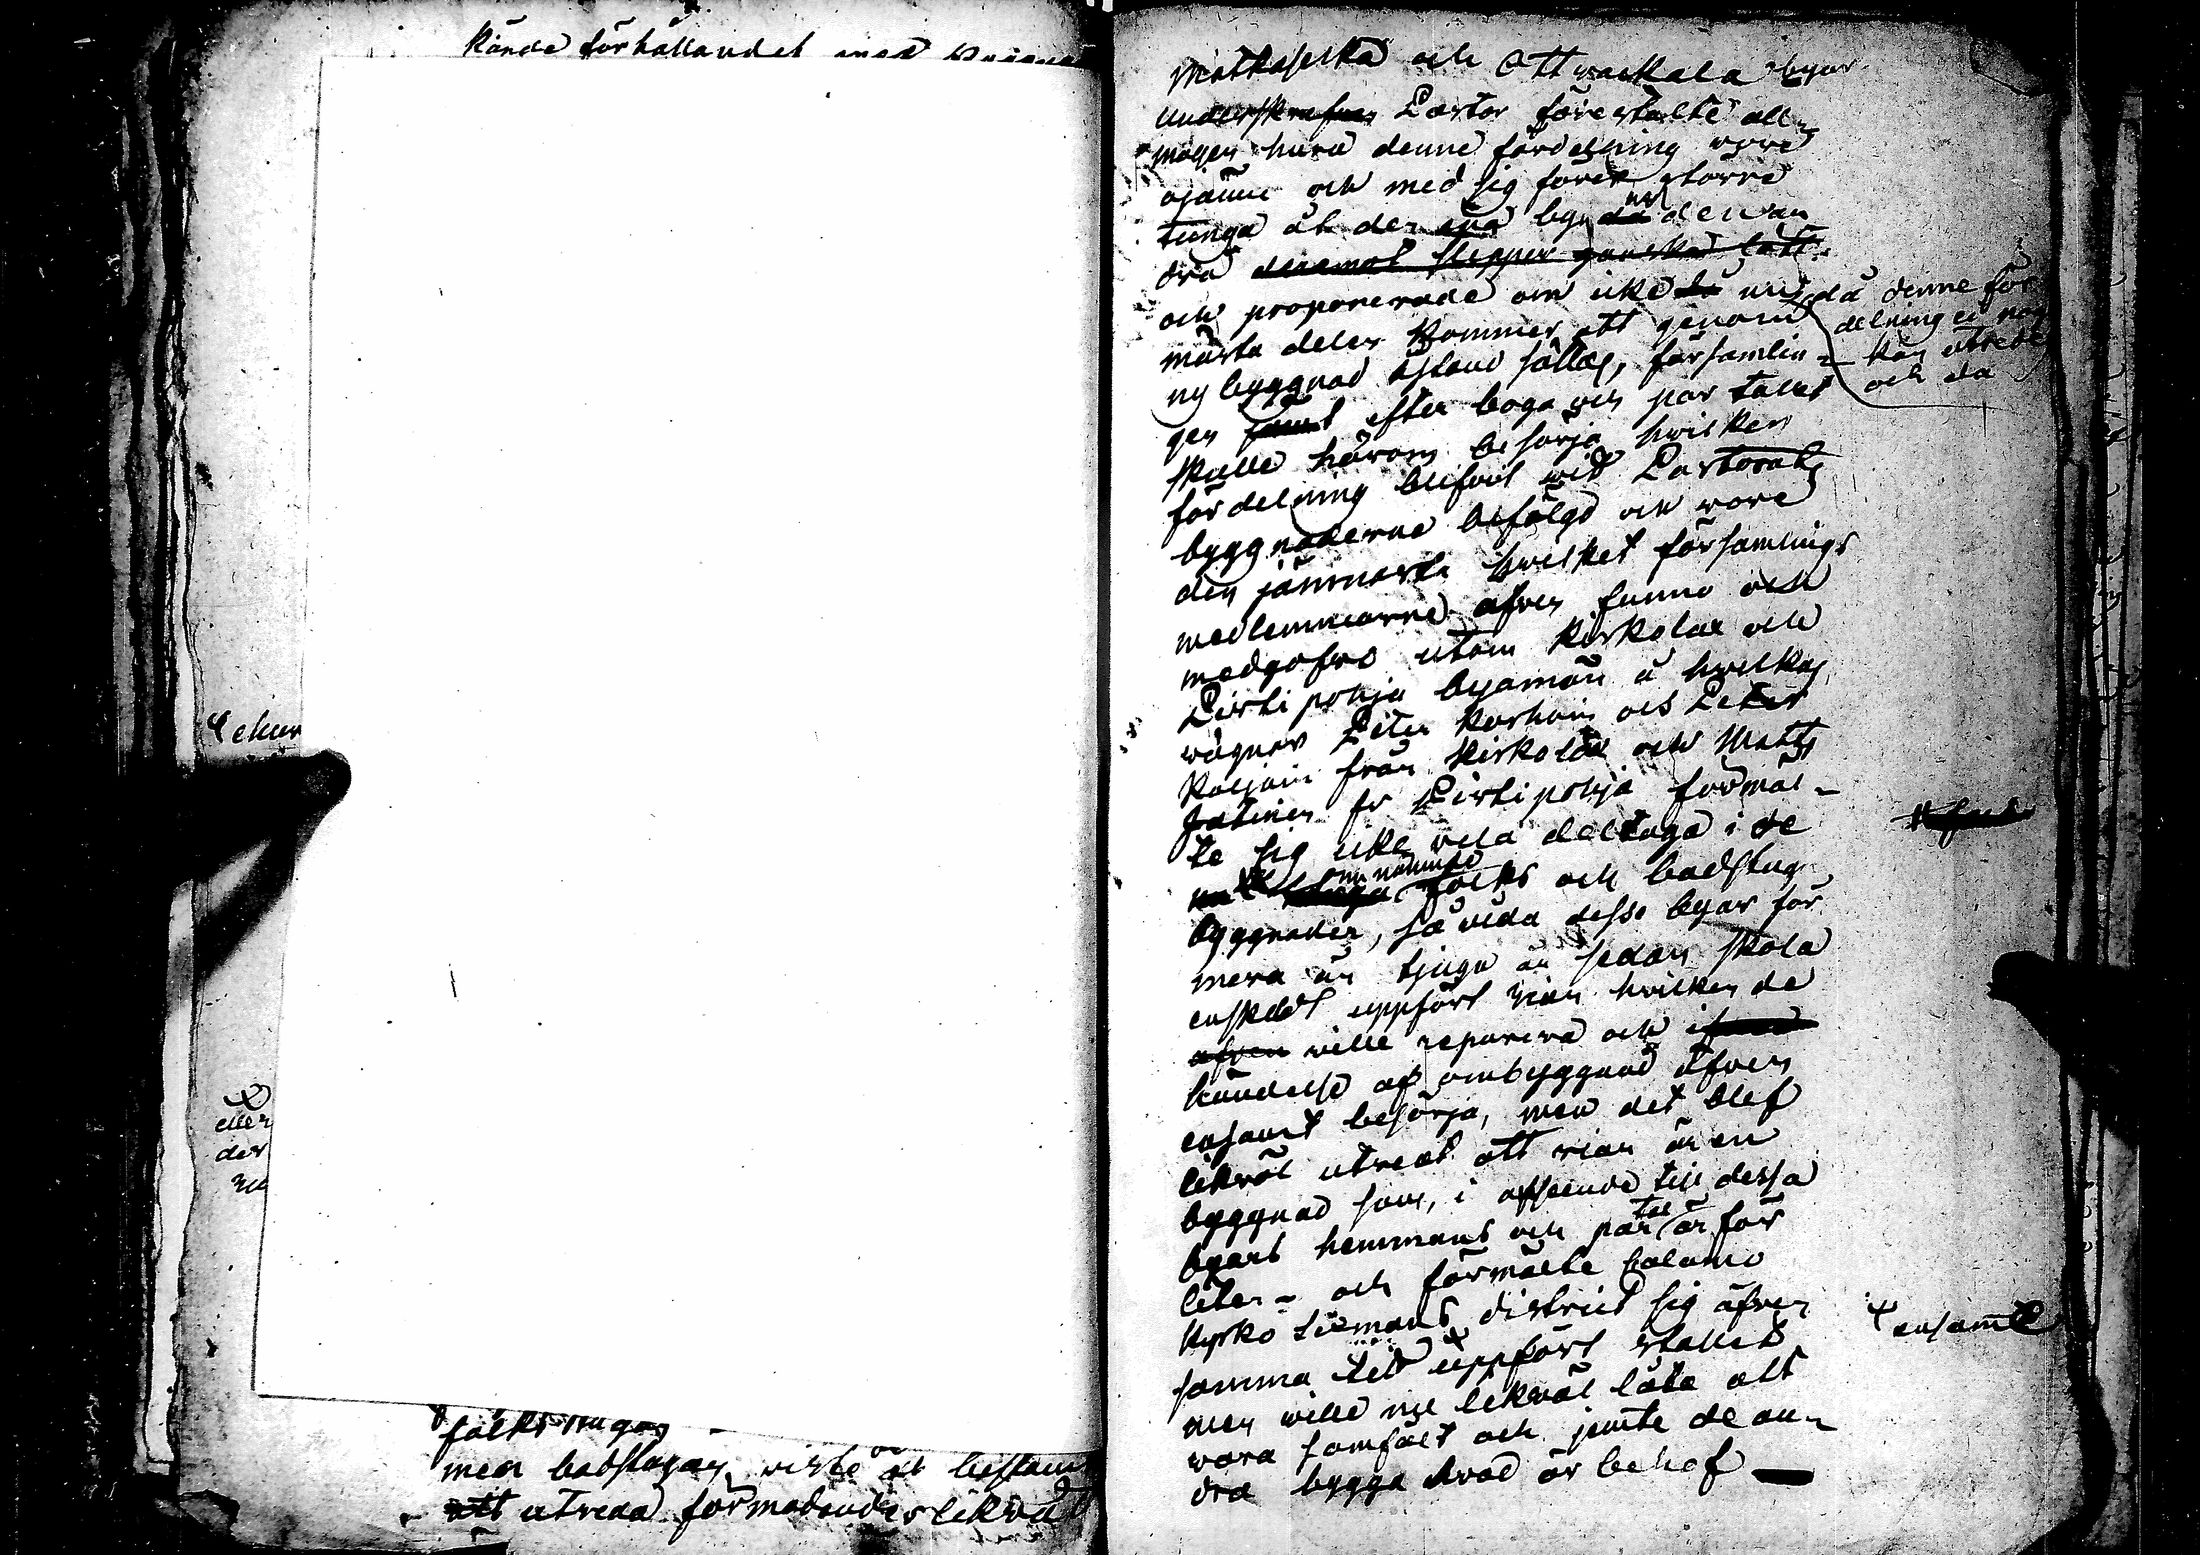 kände förhållandet med
ekun
eller
der
folkstugan
men badstugan wiste at bestämt
att utreda förmodandes likväl
Matkaselkä och Ottrackala byar
underskrefven Pastor förestälte all-
mogen huru denne fördelning wore
ojämn och med sig förer större
tunga åt den ena byn då än den an
dra deremot slipper ganska lätt.
och proponerade om icke då nu
mästa delen kommer att genom
ny byggnad istånd sättas, församlin-
gen samt efter boga och par talet
skulle härom besörja hwilken
fördelning blifvit wid Pastorats
byggnaderne befölgd och wore
den jämnaste hwilket församlings
medlemmarne äfven funno och
medgofvo utom Kirkolax och
Pirtipohja byamän å hwilkas
wägnar Peter Karhoin och Peter
Koljoin från Kirkolax och Matts
Jatinen fr Pirtipohja förmäl-
te sig icke vela deltaga i de
nu nämnde folks och badstug
byggnader, så vida desse byar för
mera än tjugo år sedan skola
enskildt uppfört rian hvilken de
äfven wille reparera och i
händelse af ombyggnad äfven
ensamt besörja, men det blef
likväl utredt att rian är en
byggnad som, i afseende till dessa
byars hemmans och par tal är för
liten - och förmälte
Kyrko Länsmans district sig äfven
samma tid uppfört stallet
men wille nu likväl låta allt
vara samfält och jemte de an-
dra bygga hvad är behof —
då denne för
delning ej nog
kan utreda
och då
ensamt